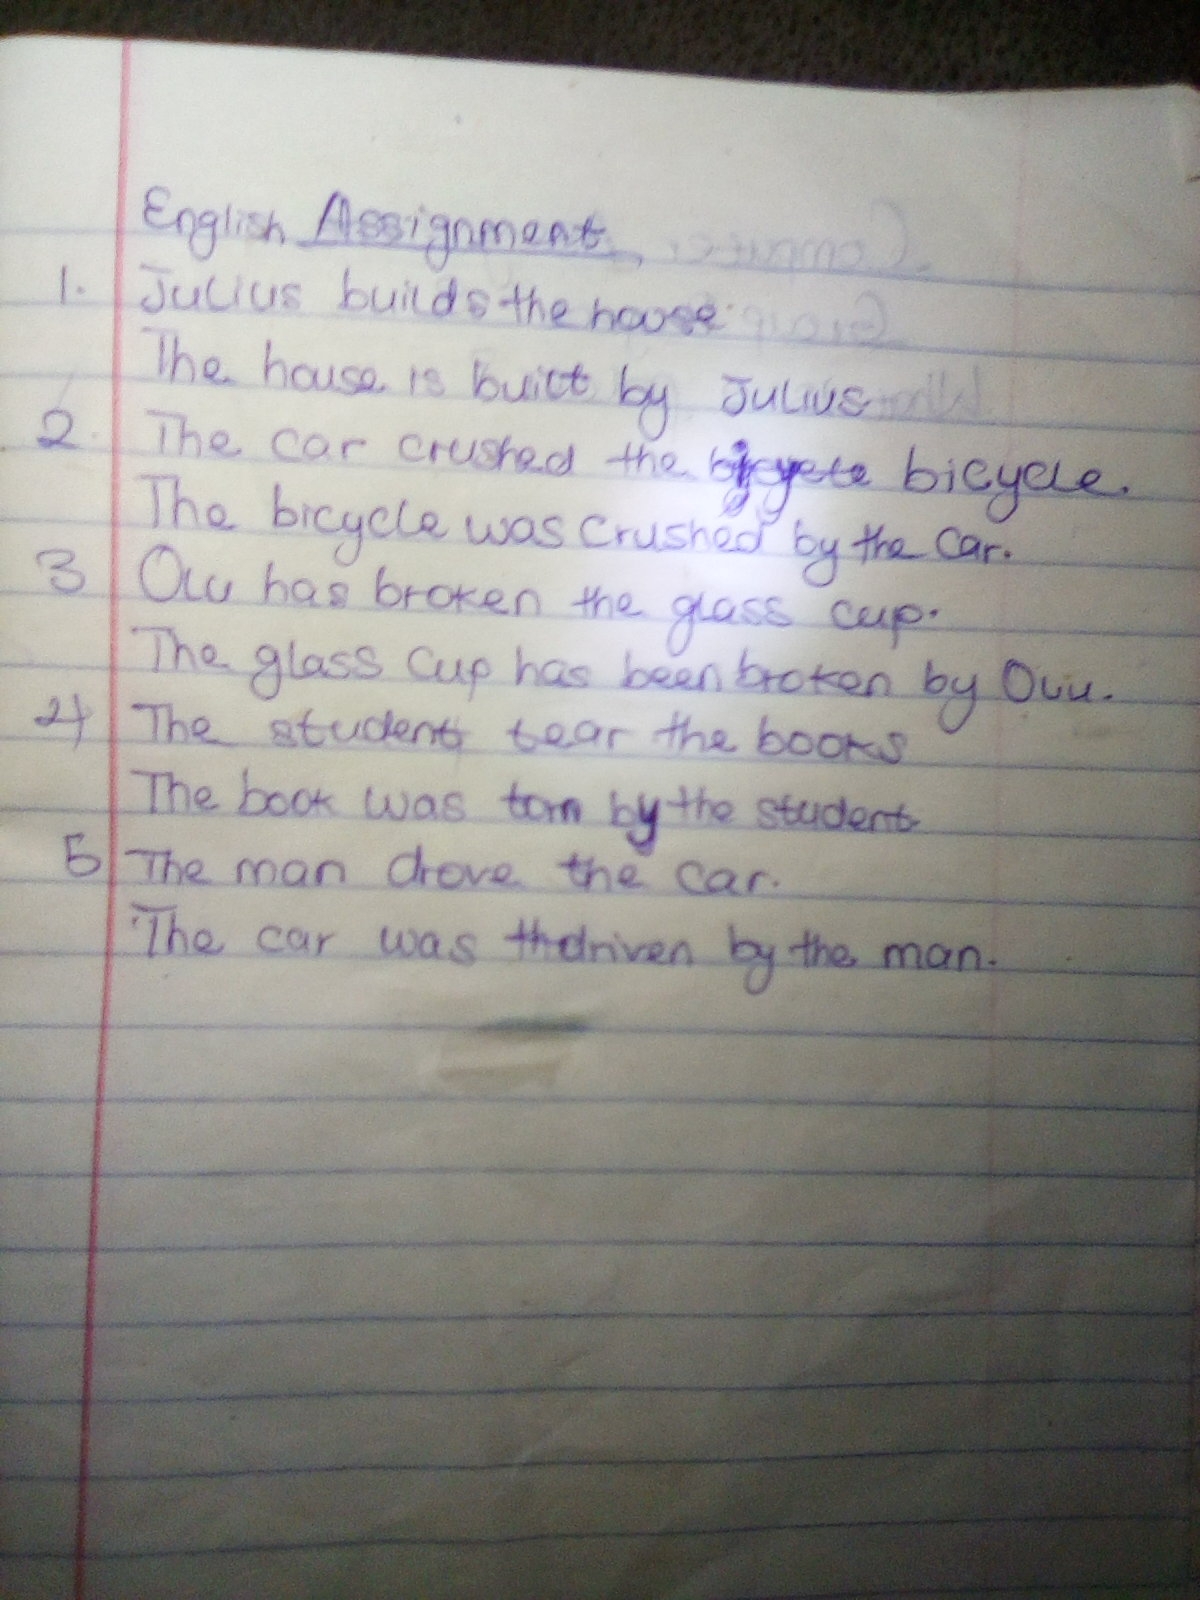 English Assignment
1. Julius builds the house.
The house is built by Julius
2. The car crushed the bicycle.
The bicycle was crushed by the car.
3 Olu has broken the glass cup.
The glass cup has been broken by Olu.
4 The student tear the books
The book was torn by the student
5 The man drove the car.
The car was driven by the man.